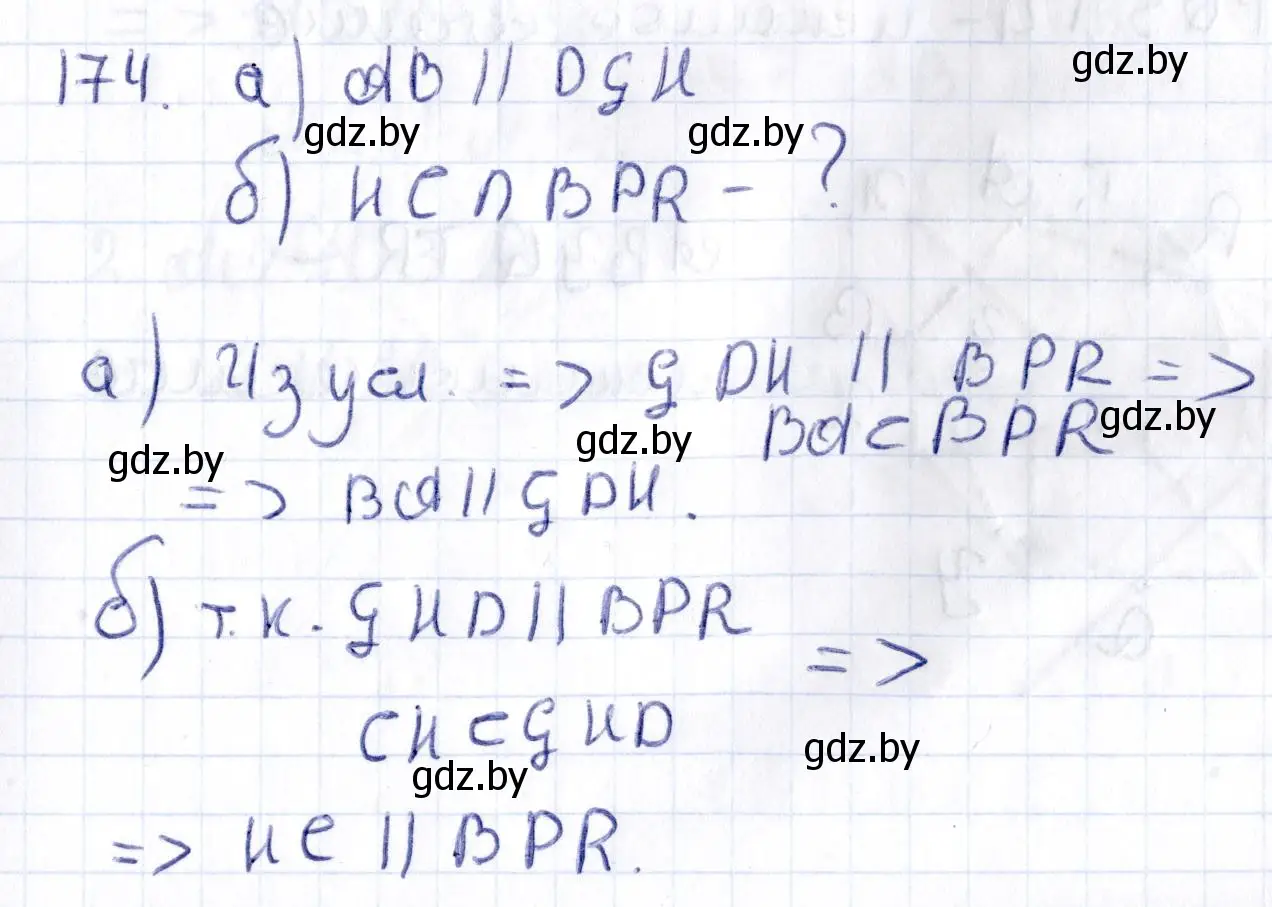 174. а) AB || DGH
gdz.by
gdz.by gdz.by
б) HC ∩ BPR - ?
а) Из усл. => GDH || BPR =>
BA ⊂ BPR gdz.by
gdz.by
gdz.by
=> BA || GDH.
б) т.к. GHD || BPR
=>
CH ⊂ GHD
gdz.by
gdz.by
=> HC || BPR.